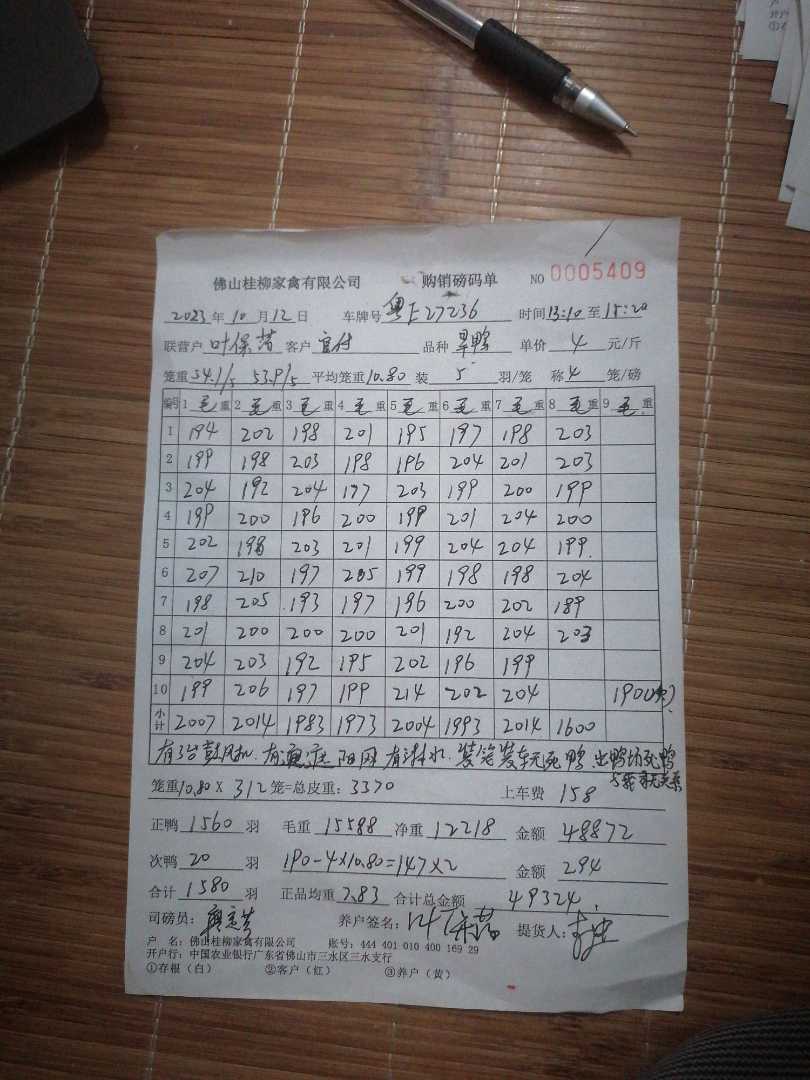 佛山桂柳家禽有限公司 购销磅码单 NO 0005409
2023年10月12日 车牌号 粤E27236 时间13:10至15:20
联营户 叶保 客户 品种 单价 4 元/斤
笼重54.1/5 53.9/5 平均笼重10.80 装 5 羽/笼 称 4 笼/磅
编号 1毛重 2毛重 3毛重 4毛重 5毛重 6毛重 7毛重 8毛重 9毛重
1 194 202 198 201 195 197 198 203
2 199 198 203 198 196 204 201 203
3 204 192 204 197 203 199 200 199
4 199 200 196 200 199 201 204 200
5 202 198 203 201 199 204 204 199
6 207 210 197 205 199 198 198 204
7 198 205 193 197 196 200 202 189
8 201 200 200 200 201 192 204 203
9 204 203 192 195 202 196 199
10 199 206 197 199 214 202 204 190(次)
小计 2007 2014 1983 1973 2004 1993 2014 1600
有3台鼓风机.有 阳网 有淋水.装笼装车死鸭 出鸭功死鸭
笼重10.80×312笼=总皮重:3370 上车费 158
正鸭 1560 羽 毛重 15588 净重 12218 金额 48872
次鸭 20 羽 190-4×10.80=147×2 金额 294
合计 1580 羽 正品均重 7.83 合计总金额 49324.
司磅员: 养户签名:叶保 提货人:
户 名:佛山桂柳家禽有限公司 账号:444 401 010 400 169 29
开户行:中国农业银行广东省佛山市三水区三水支行
①存根(白) ②客户(红) ③养户(黄)